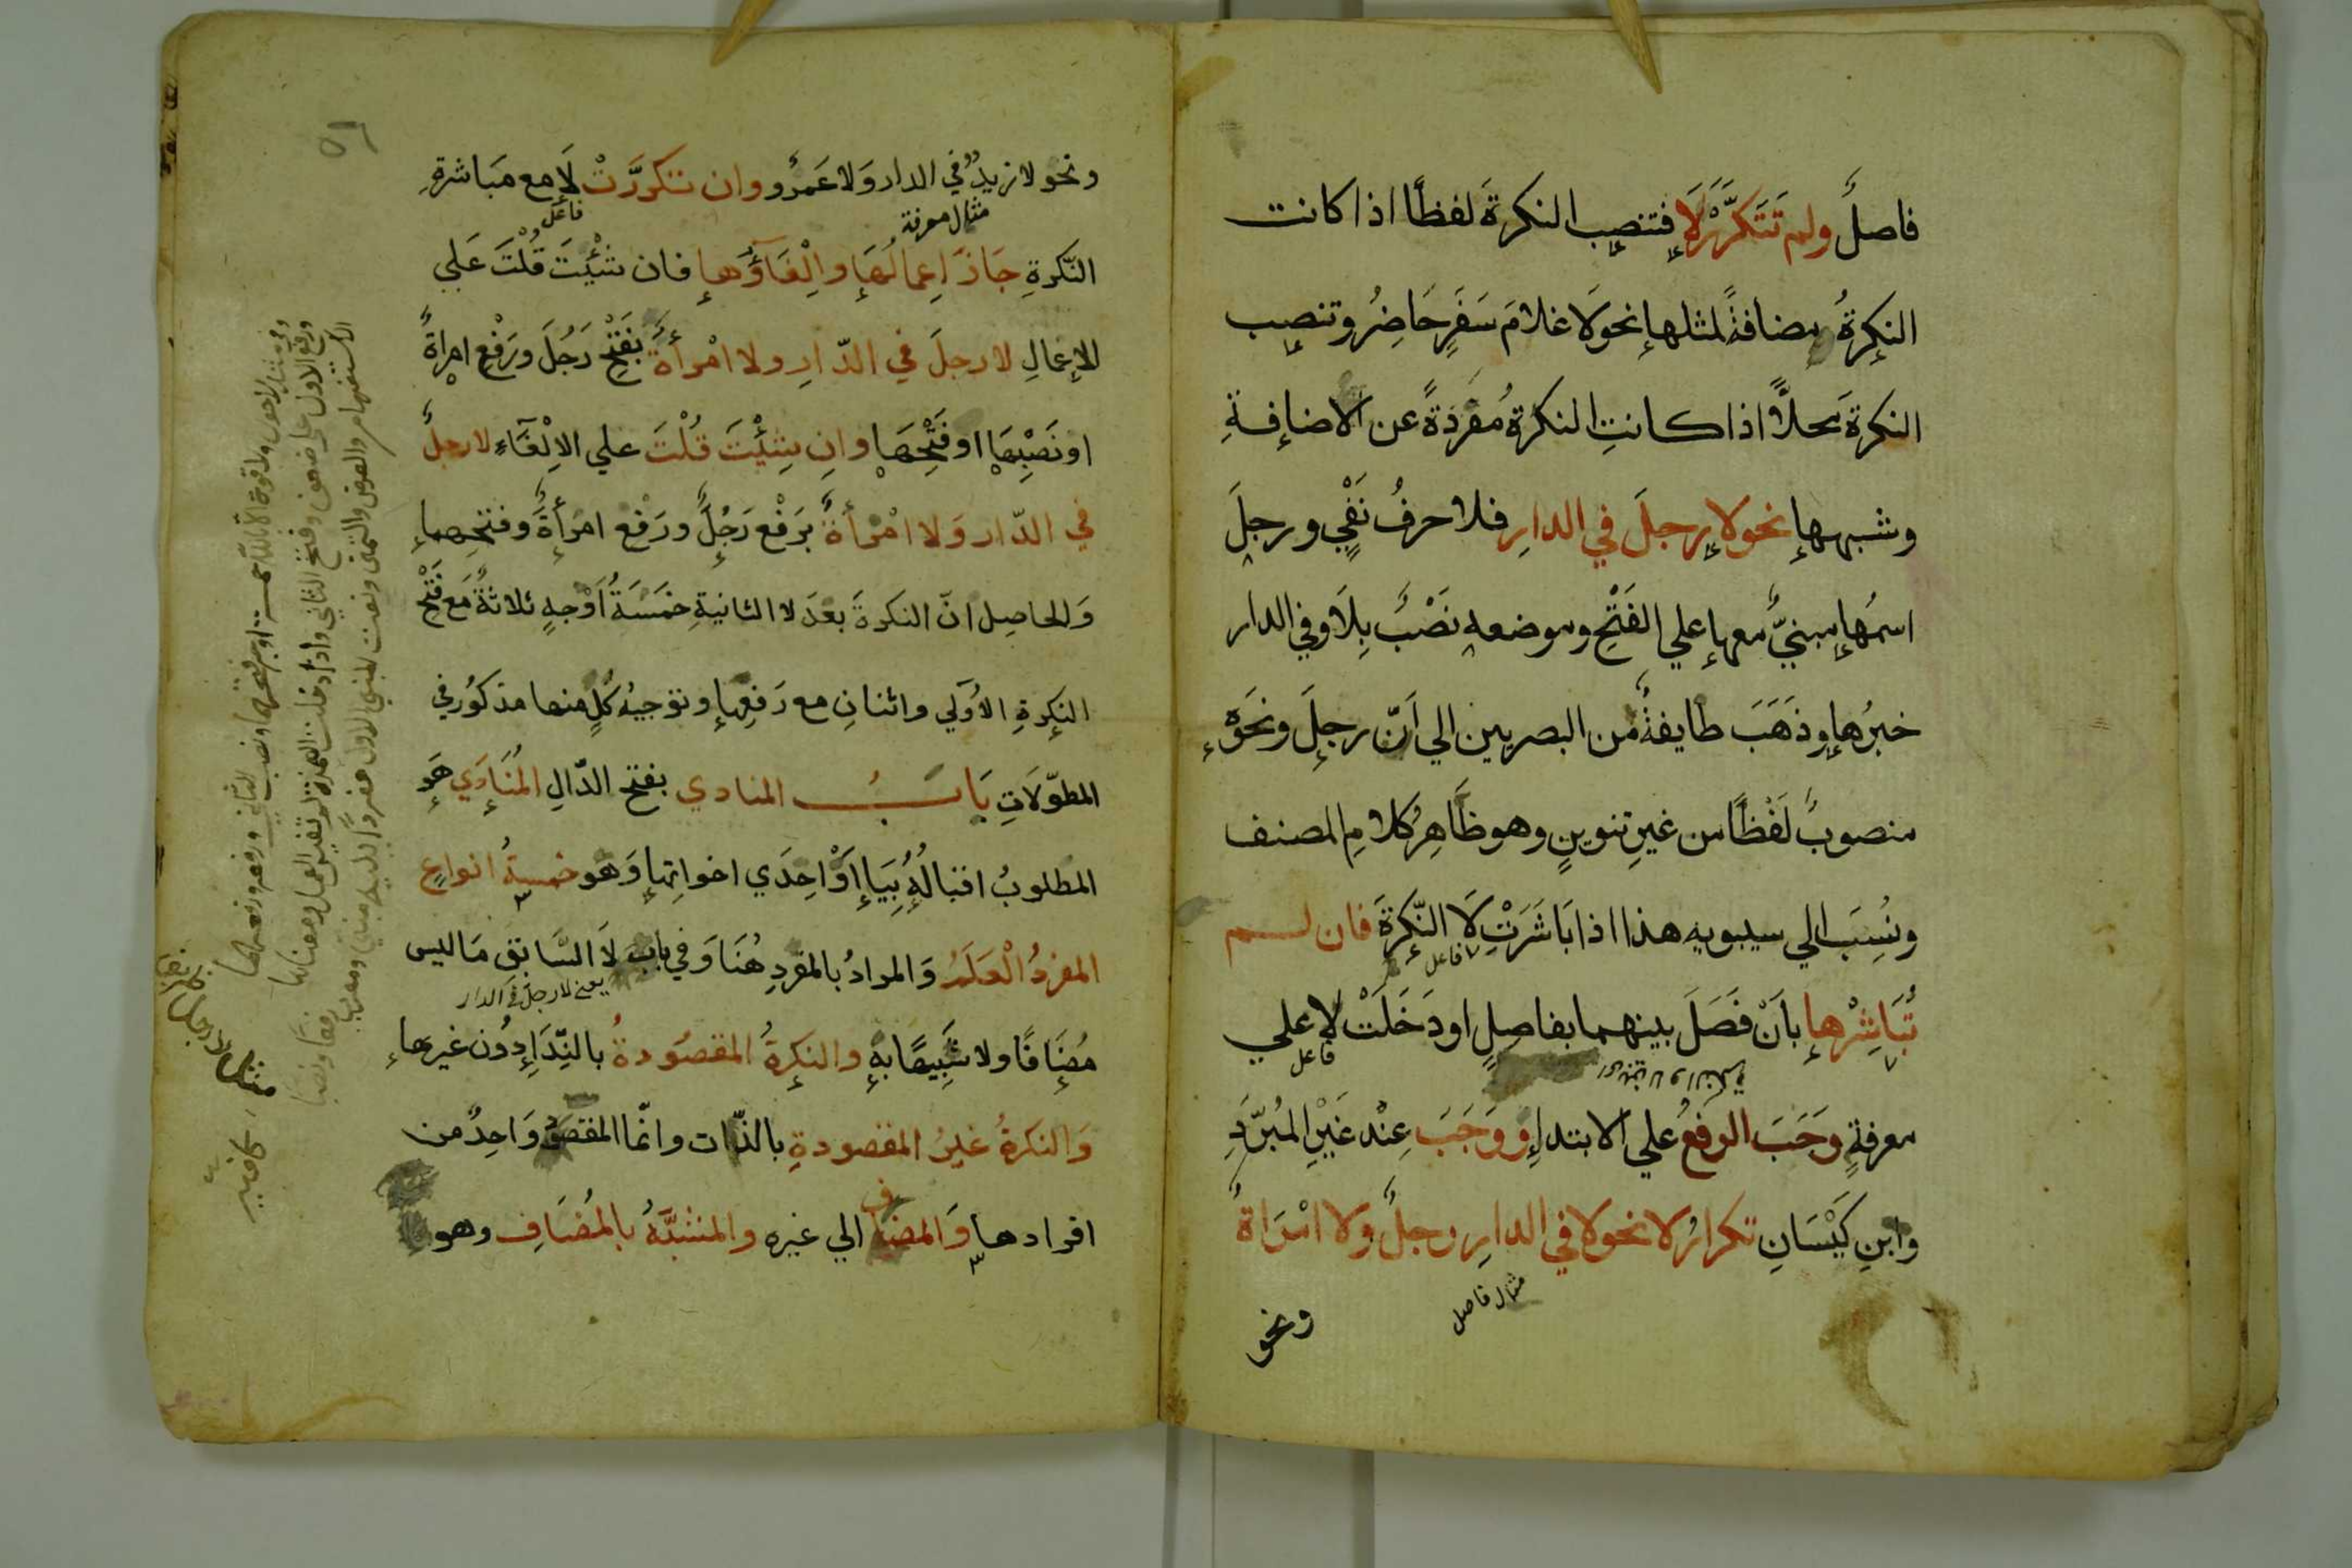 فاصلٌ ولم تَتَكَرَّرْ لَا فتنصب النكرةَ لفظًا اذا كانت
النكرةُ مضافةً لمثلها نحو لَا غلامَ سَفَرٍ حَاضِرُ وتنصب
النكرةَ محلًّا اذا كانتِ النكرةُ مُفْرَدَةً عن الاضافةِ
وشبهها نحو لا رجلَ في الدارِ فلا حرفُ نَفْيٍ ورجلَ
اسمُها مبنيٌّ معها علي الفَتْحِ وموضعه نَصْبٌ بِلَا وفي الدار
خبرُها وذَهَبَ طايفةٌ من البصريين الي اَنّ رجلَ ونَحْوَهُ
منصوبٌ لَفْظًا من غيرِ تنوينٍ وهو ظَاهِرُ كلامِ المصنف
ونُسِبَ الي سيبويه هذا اذا بَاشَرَتْ لَا النّكِرَةَ فان لم
فاعل
تُبَاشِرْها بأَنْ فَصَلَ بينهما بفاصلٍ او دَخَلَتْ لا علي
فاعل
معرفةٍ وَجَبَ الرفعُ علي الابتداءِ ووَجَبَ عِنْد غَيْرِ المُبَرَّدِ
وابنِ كَيْسَانِ تكرارُ لا نحو لا في الدارِ رجلٌ ولا امْرَاةٌ
مثال فاصل
ونحو
٥٦
ونحو لا زيدٌ في الدار وَلا عَمرٌو وان تكرَّرَتْ لَا مع مبَاشرةِ
مثال معرفة
فاعل
النّكرةِ جَازَ اِعمالُهَا واِلْغَاؤُها فان شئْتَ قُلْتَ عَلي
الاِعْمالِ لا رجلَ في الدّارِ ولا امْرأةٌ بفَتْحِ رَجُلَ ورَفْعِ امراةٌ
او نَصْبِهَا او فَتْحِهَا وانِ شِئْتَ قُلْتَ علي الاِلْغَآءِ لا رجلٌ
في الدّار وَلا امْرأةٌ برَفْع رَجُلٌ ورَفْع امرأةٌ وفتحِها
وَالحاصِل انّ النكرةَ بعدَ لا الثانيةِ خمَسَةُ اَوْجهٍ ثلاثةٌ مَع فَتْحِ
النكرةِ الاُولي واثنانِ مع رَفعِها وتوجيهُ كُلٍّ منها مذكورٌ في
المطوّلَاتِ بَابُ المنادي بفتح الدّالِ المُنَادَي هَو
المطلوبُ اقبالُهُ بِيَا اَوْ اِحدَي اخواتِها وَهو خمسةُ انواعٍ
المفردُ الْعَلَمُ وَالمرادُ بالمفردِ هُنَا وَفي باب لَا السَّابقِ مَا ليس
يعني لا رجل في الدار
مُضَافًا ولا شَبِيهًا بهِ والنكرةُ المقصُودةُ بالنِّدَاءِ دُون غيرها
وَالنكرةُ غيرُ المقصودةِ بالذّات وانّما المقصودُ وَاحِدٌ من
افرادها وَالمضافُ الي غيره والمشَبَّهُ بالمُضَافِ وهو